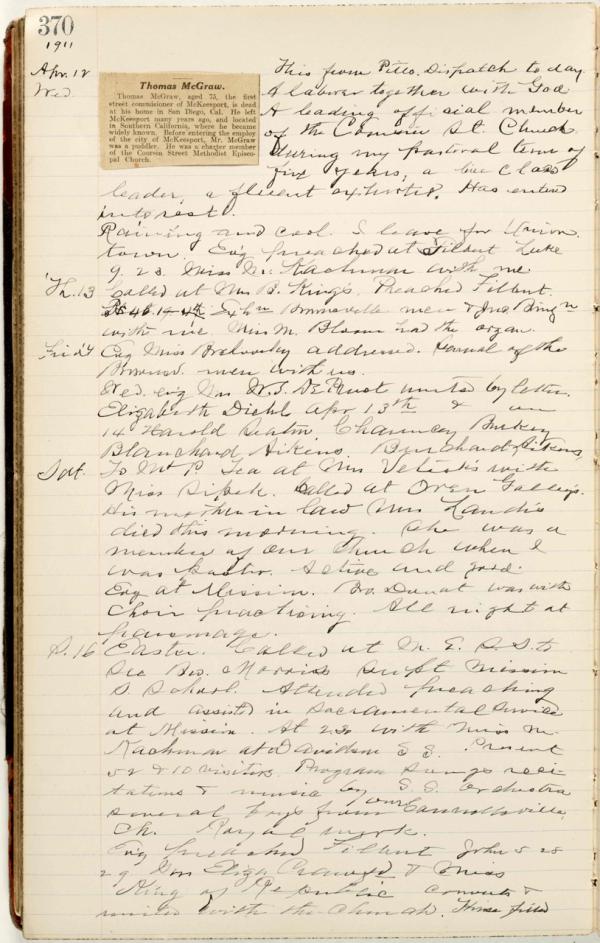 370
1911
Apr. 12
Wed
Thomas McGraw.
Thomas McGraw, aged 75, the first
street commisioner of McKeesport, is dead
at his home in San Diego, Cal. He left
McKeesport many years ago, and located
in Southern California, where he became
widely known. Before entering the employ
of the city of McKeesport, Mr. McGraw
was a puddler. He was a charter member
of the Coursin Street Methodist Episco-
pal Church.
This from Pitts. Dispatch to day
A laborer together with God
A leading official member
of the Coursin St. Church
during my pastoral term of
five years, a live Class
leader, a fluent exhorter. Has entered
into rest.
Raining and cool. I leave for Union
town. Evg preached at Filbert Luke
9.23. Miss M. Kachman with me
Th. 13 Called at Mrs B. King's. Preached Filbert.
Brownsville men &
with me. Miss M. Bloom had the organ.
Frid 14 Evg Miss addressed. of the
men with us.
Wed. evg Mrs united by letter.
Elizabeth Diehl Apr 13th & on
14 Harold Seaton, Chauncey
Blanchard Aikins. Aikins,
Sat To Mt P. Tea at Mrs with
Miss Called at Oren
His mother in law Mrs Landis
died this morning. She was a
member of our Church when I
was pastor. Active and good.
Evg at Mission. Bro. was with
Choir practicing. All night at
parsonage.
S. 16 Easter. Called at M. E. S. S. to
see Bro. Morris Supt Mission
S. School. Attended preaching
and assisted in Sacramental Service
at Mission. At 2.30 with Miss M.
Kachman at Davidson S S. Present
52 & 10 visitors. Program Songs reci-
tations & music by S. S. Orchestra
several boys from our Connellsville,
Ch. Royal work.
Evg preached Filbert John 5 28
29 Mrs Eliza & Miss
King of Republic converts &
united with the Church. House filled